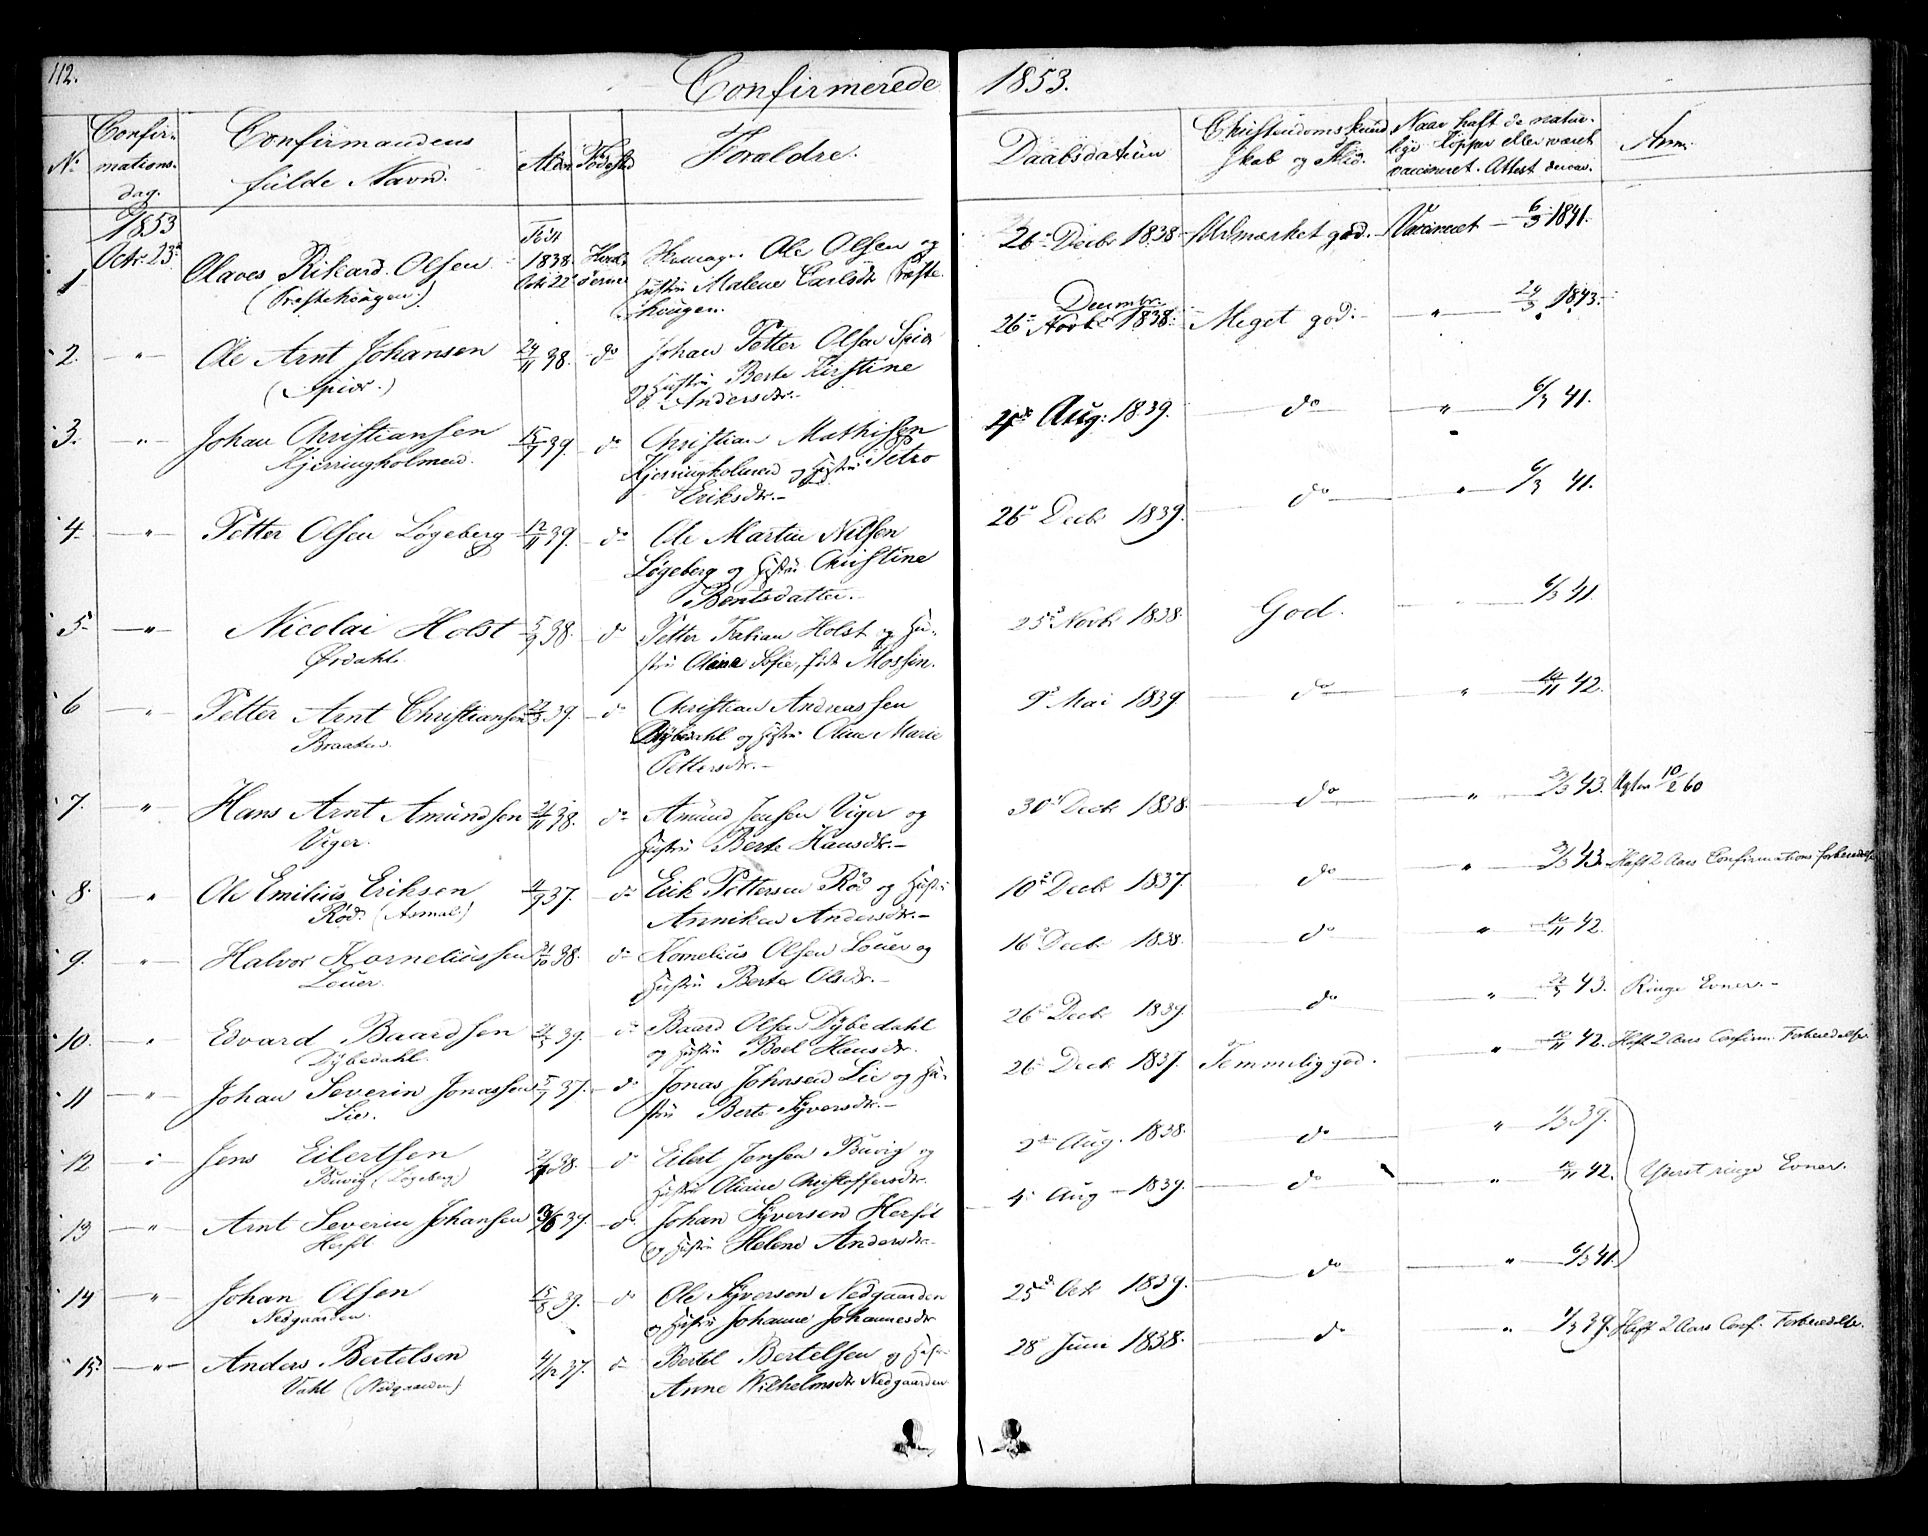 112.
Confirmerede 1853.
No
Confir-
mations-
dag.
Confirmandens
fulde Navn.
Alder
Fødested
Foræld​re.
Daabsdatum
Christendomskund
skab og Flid.
Naar haft de natur-
lige Kopper eller været
vaccineret. Attest derov.
Anm:
1853
Octr 23de
1
Olaves Rikard Olsen
(Præstehougen)
Født
1838
Octr 22
Hval-
øerne
Ole Olsen og
Hustru Malene Carlsdr Præste
hougen.
26de Decbr 1838
Udmærket god.
Vaccineret 6/3 1841.
2.
Ole Arnt Johansen
(Spior.)
24/11 38.
do
Johan Petter Olsen Spior
og Hustru Berte Kirstine
Andersdr.
Decembr
26de Novbr 1838.
Meget god.
" 24/3 1843.
3.
Johan Christiansen
Kjerringholmen.
15/7 39.
do
Christian Mathisen
Kjerringholmen og Hustru Petro
Eriksdr.
4de Aug: 1839.
do
" 6/3 41.
4.
Petter Olsen Løgeberg
12/11 39.
do
Ole Martin Nilsen
Løgeberg og Hustru Christine
Bentsdatter.
26de Decbr 1839.
do
" 6/3 41.
5.
Nicolai Holst
Ørdahl.
5/9 38.
do
Petter Fabian Holst og Hu-
stru Oliane Sofie, født Mossin.
25de Novbr 1838
God.
6/3 41.
6
Petter Arnt Christiansen
Braaten.
22/3 39.
do
Christian Andreassen
Dybedahl og Hustru Oline Marie
Pettersdr.
9de Mai 1839
do
" 14/11 42.
7.
Hans Arnt Amundsen
Viger.
21/11 38.
do
Amund Jensen Viger og
Hustru Berte Hansdr.
30de Decbr 1838.
do
" 3/3 43.
10/2 60
8.
Ole Emilius Eriksen
Rød. (Asmal.)
4/9 37.
do
Erik Pettersen Rød og Hustru
Anniken Andersdr.
10de Decbr 1837.
do
" 3/3 43.
Haft 2 Aars Confirmations forberedelse
9.
Halvor Korneliussen
Løuer.
21/10 38.
do
Kornelius Olsen Løuer og
Hustru Berte Olsdr.
16de Decbr 1838.
do
" 14/11 42.
10.
Edvard Baardsen
Dybedahl.
39.
do
Baard Olsen Dybedahl
og Hustru Boel Hansdr.
26de Decbr 1839
do
" 43.
Ringe Evner.
11
Johan Severin Jonassen
Lie.
5/7 37.
do
Jonas Johnsen Lie og Hu-
stru Berte Syversdr.
26de Decbr 1837.
Temmelig god.
" 42.
Haft 2 Aars Confirm. Forberedelse.
12
Jens Eilertsen
Buvig (Løgeberg)
38.
do
Eilert Jensen Buvig og
Hustru Oliane Christoffersdr.
2den Aug. 1838.
do
" 1/3 39.
13
Arnt Severin Johansen
Herføl
39.
do
Johan Syversen Herføl
og Hustru Helene Andersdr.
4de Aug 1839.
do
" 42.
Yderst ringe Evner.
14
Johan Olsen
Nedgaarden.
15/8 39.
do
Ole Syversen Nedgaarden
og Hustru Johanne Johannesdr
25de Octr 1839.
do
" 6/3 41.
15.
Anders Bertelsen
Vahl (Nedgaarden)
4/12 37.
do
Bertel Bertelsen og Hustru
Anne Wilhelmsdr Nedgaarden
28de Juni 1838.
do
" 1/3 39.
Haft 2 Aars Conf. Forberedelse.